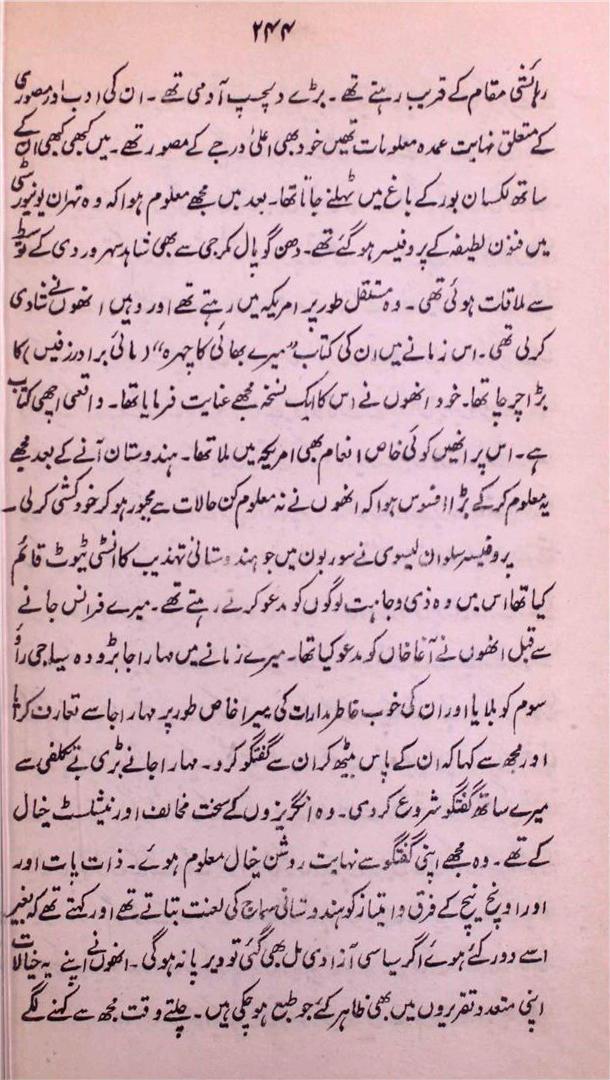 ۲۴۴
رہائشی مقام کے قریب رہتے تھے۔ بڑے دلچسپ آدمی تھے۔ ان کی ادب اور مصوری
کے متعلق نہایت عمدہ معلومات تھیں خود بھی اعلیٰ درجے کے مصور تھے۔ میں کبھی کبھی ان کے
ساتھ لکسان بور کے باغ میں ٹہلنے جاتا تھا۔ بعد میں مجھے معلوم ہوا کہ وہ تہران یونیورسٹی
میں فنون لطیفہ کے پروفیسر ہو گئے تھے۔ دھن گوپال مکرجی سے بھی شاہد سہروردی کے توسط
سے ملاقات ہوئی تھی۔ وہ مستقل طور پر امریکہ میں رہتے تھے اور وہیں انھوں نے شادی
کر لی تھی۔ اس زمانے میں ان کی کتاب "میرے بھائی کا چہرہ" (مائی برادرز فیس) کا
بڑا چرچا تھا۔ خود انھوں نے اس کا ایک نسخہ مجھے عنایت فرمایا تھا۔ واقعی اچھی کتاب
ہے۔ اس پر انھیں کوئی خاص انعام بھی امریکہ میں ملا تھا۔ ہندوستان آنے کے بعد مجھے
یہ معلوم کر کے بڑا افسوس ہوا کہ انھوں نے نہ معلوم کن حالات سے مجبور ہو کر خودکشی کر لی۔
پروفیسر سلوان لیوی نے سوربون میں جو ہندوستانی تہذیب کا انسٹی ٹیوٹ قائم
کیا تھا اس میں وہ ذی وجاہت لوگوں کو مدعو کرتے رہتے تھے۔ میرے فرانس جانے
سے قبل انھوں نے آغا خاں کو مدعو کیا تھا۔ میرے زمانے میں مہاراجا بڑودہ سیاجی راؤ
سوم کو بلایا اور ان کی خوب خاطر مدارات کی میرا خاص طور پر مہاراجا سے تعارف کرایا
اور مجھ سے کہا کہ ان کے پاس بیٹھ کر ان سے گفتگو کرو۔ مہاراجا نے بڑی بے تکلفی سے
میرے ساتھ گفتگو شروع کر دی۔ وہ انگریزوں کے سخت مخالف اور نیشنلسٹ خیال
کے تھے۔ وہ مجھے اپنی گفتگو سے نہایت روشن خیال معلوم ہوئے۔ ذات پات اور
اور اونچ نیچ کے فرق و امتیاز کو ہندوستانی سماج کی لعنت بتاتے تھے اور کہتے تھے کہ بغیر
اسے دور کئے ہوے اگر سیاسی آزادی مل بھی گئی تو دیرپا نہ ہوگی۔ انھوں نے اپنے یہ خیالات
اپنی متعدد تقریروں میں بھی ظاہر کئے جو طبع ہو چکی ہیں۔ چلتے وقت مجھ سے کہنے لگے